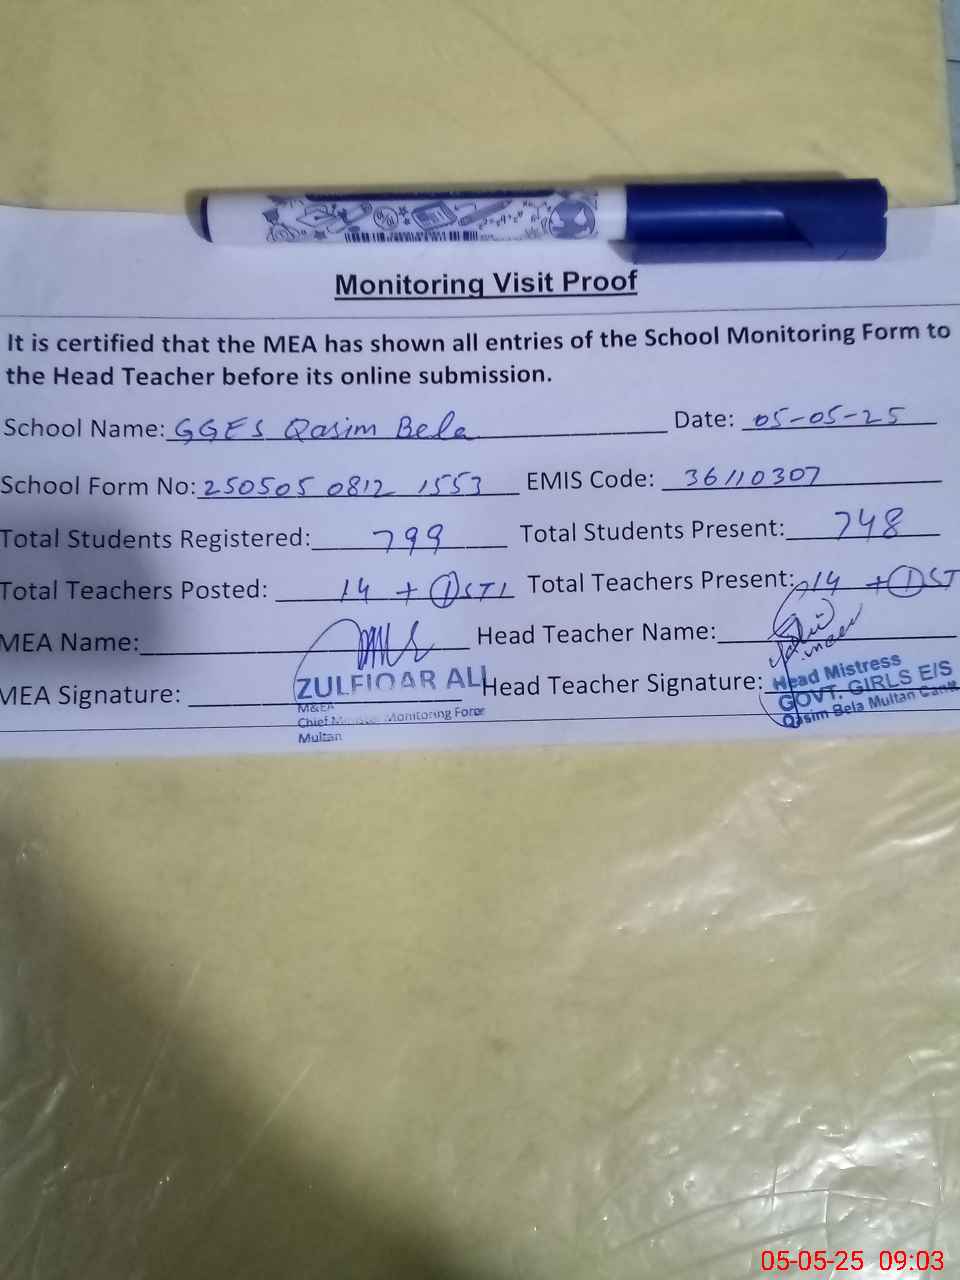 Monitoring Visit Proof
It is certified that the MEA has shown all entries of the School Monitoring Form to
the Head Teacher before its online submission.
School Name: GGES Qasim Bela Date: 05-05-25
School Form No: 250505 0812 1553 EMIS Code: 36110307
Total Students Registered: 799 Total Students Present: 748
Total Teachers Posted: 14 + 1 STI Total Teachers Present: 14 + 1 ST
MEA Name: Head Teacher Name:
MEA Signature: Head Teacher Signature:
ZULFIQAR ALI
M&EA
Chief Monitoring Force
Multan
Head Mistress
GOVT. GIRLS E/S
Qasim Bela Multan Cantt
05-05-25 09:03